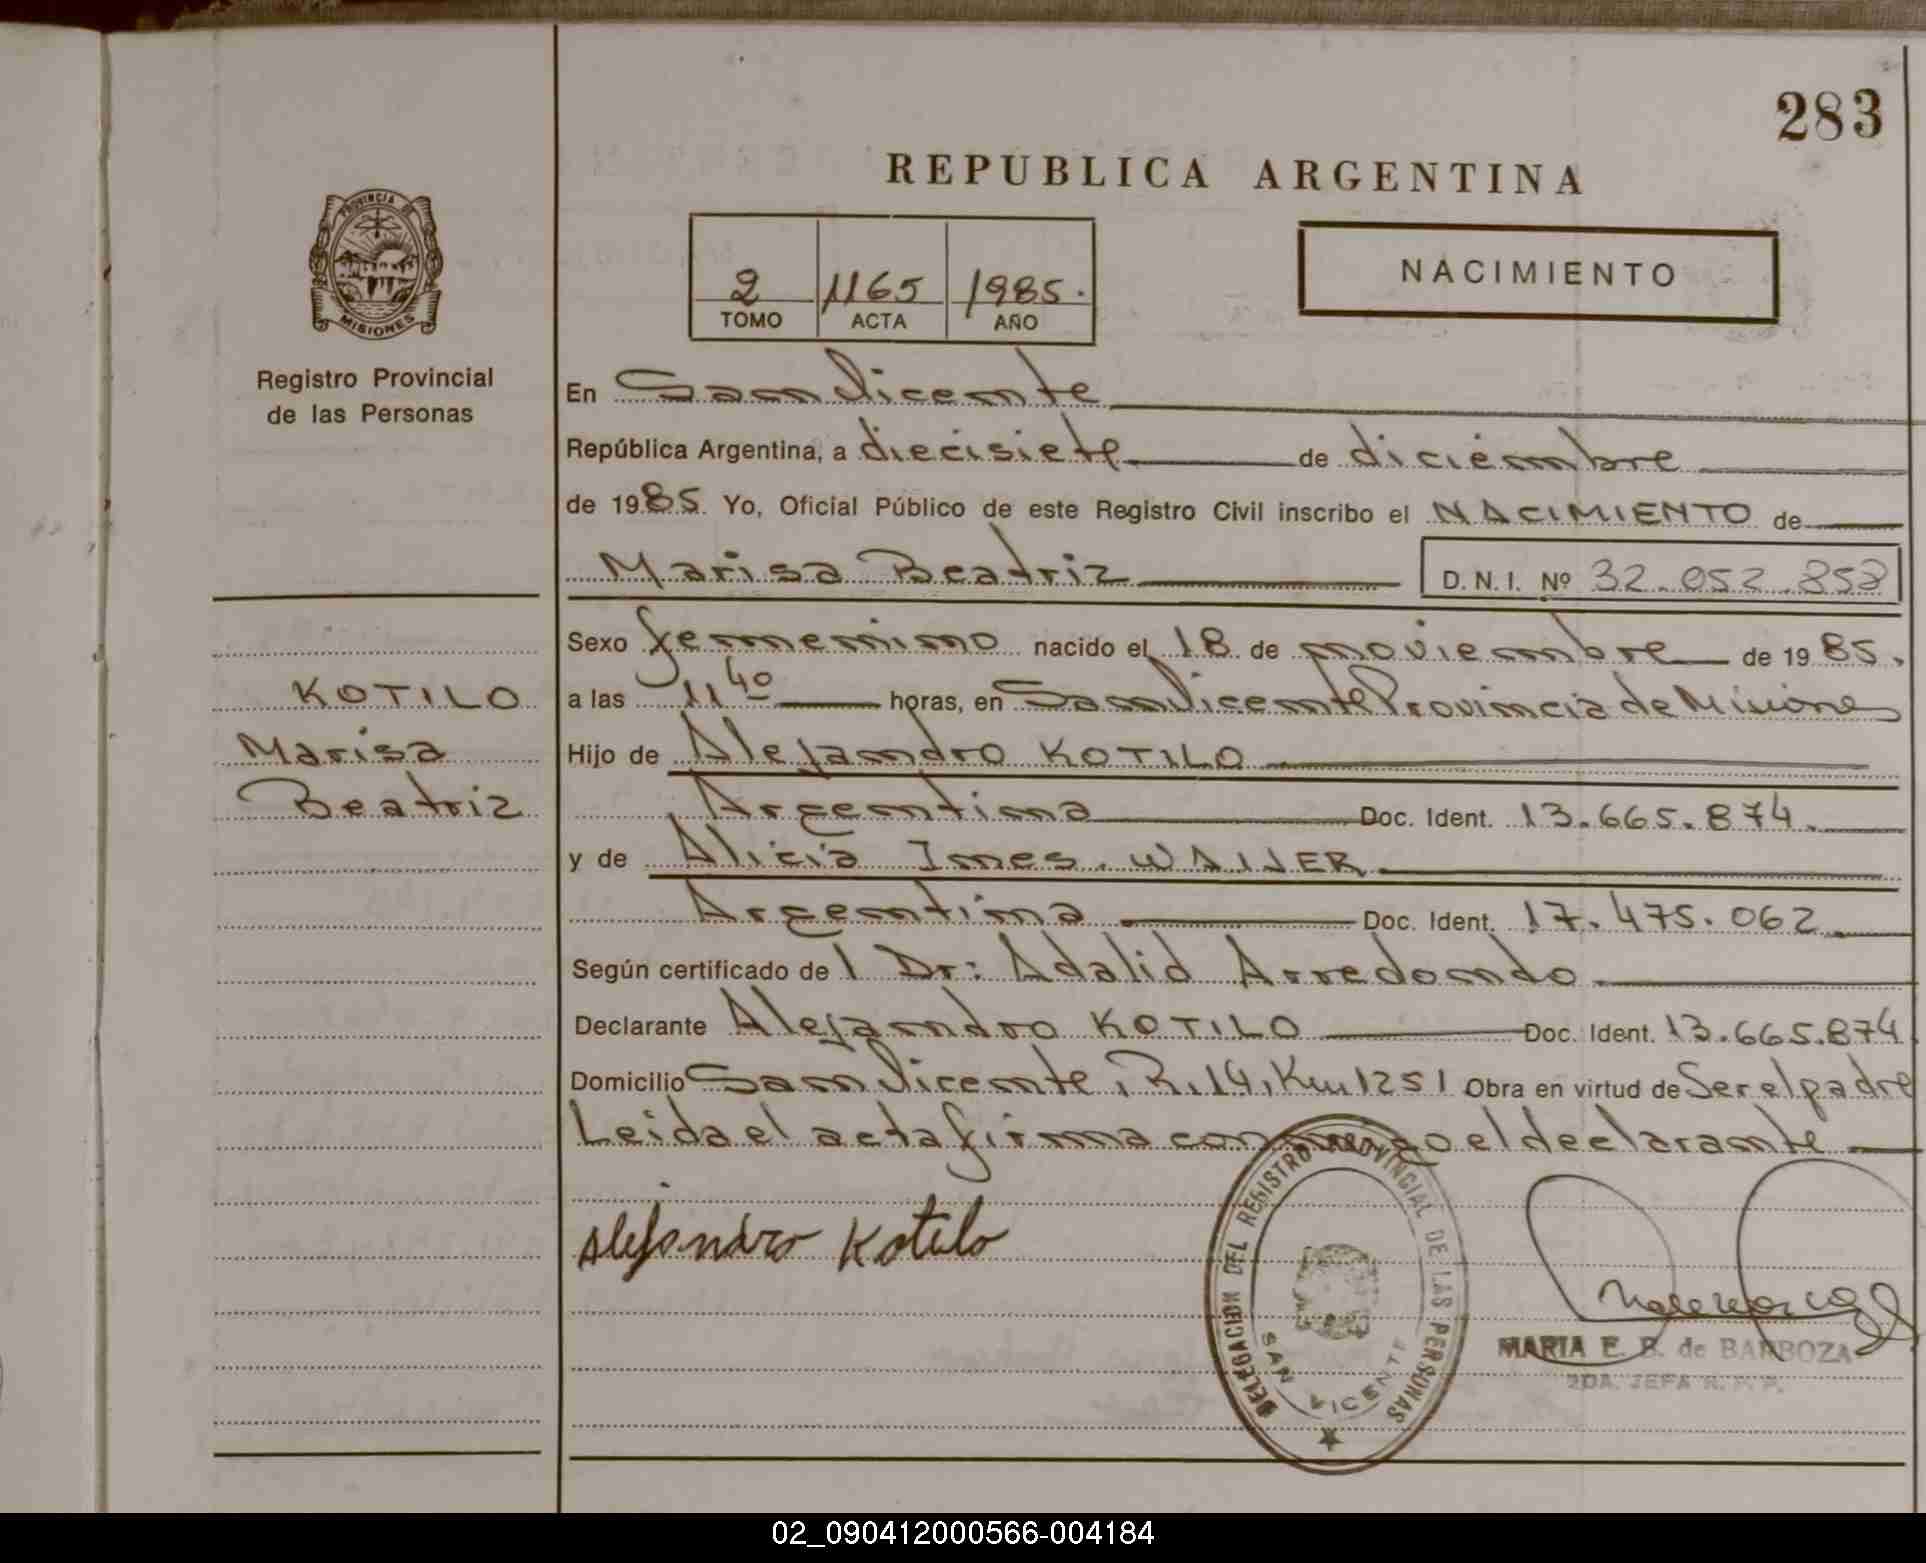 283
REPUBLICA ARGENTINA
PROVINCIA DE
MISIONES
Registro Provincial
de las Personas
2 1165 1985.
TOMO ACTA AÑO
NACIMIENTO
En San Vicente
República Argentina, a diecisiete de diciembre
de 1985. Yo, Oficial Público de este Registro Civil inscribo el NACIMIENTO de
Marisa Beatriz D. N. I. Nº 32.052.858
Sexo femenino nacido el 18 de noviembre de 1985.
KOTILO
Marisa
Beatriz
a las 11 40 horas, en San Vicente Provincia de Misiones
Hijo de Alejandro KOTILO
Argentina Doc. Ident. 13.665.874.
y de Alicia Ines. WAIJER
Argentina Doc. Ident. 17.475.062
Según certificado de l Dr: Adalid Arredondo
Declarante Alejandro KOTILO Doc. Ident. 13.665.874
Domicilio San Vicente, R. 14, Km 1251 Obra en virtud de Ser el padre
Leida el acta firma conmigo el declarante
Alejandro Kotilo
DELEGACION DEL REGISTRO PROVINCIAL DE LAS PERSONAS
SAN VICENTE
MARIA E. B. de BARBOZA
2DA. JEFA R. P. P.
02_090412000566-004184